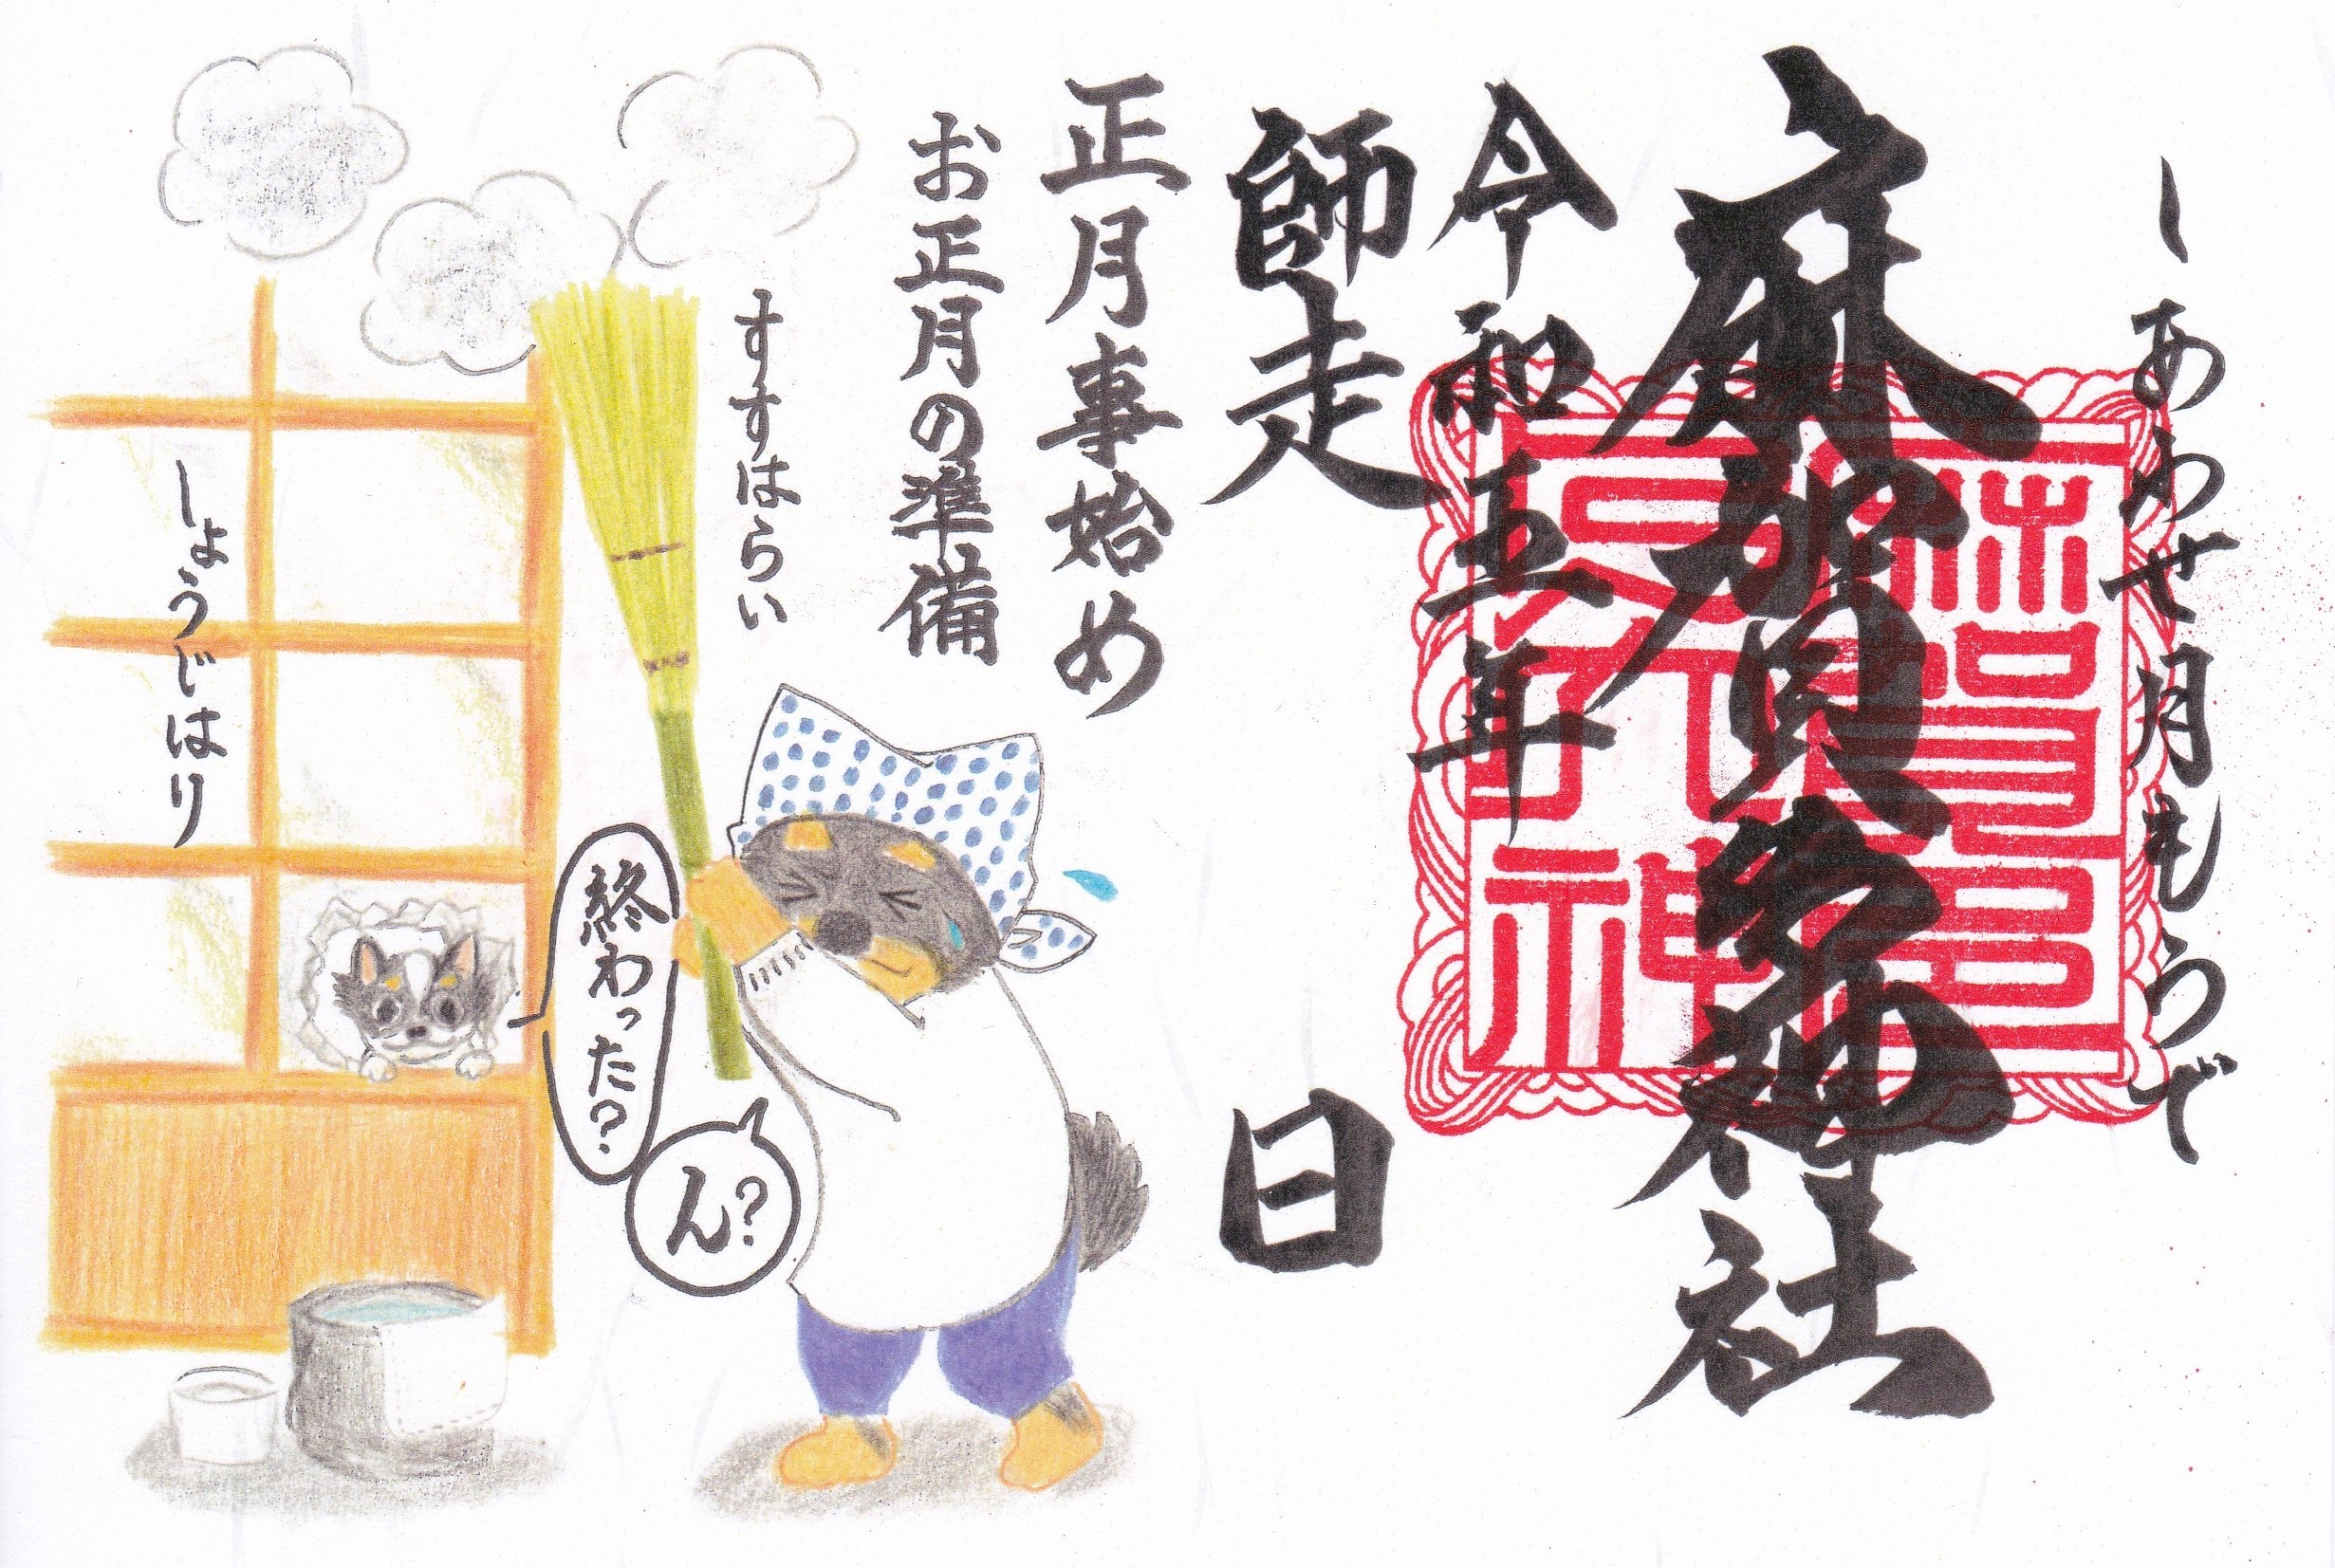 しあわせ月もうで
麻賀多神社
令和五年
師走　日
正月事始め
お正月の準備
すすはらい
しょうじはり
終わった？
ん？